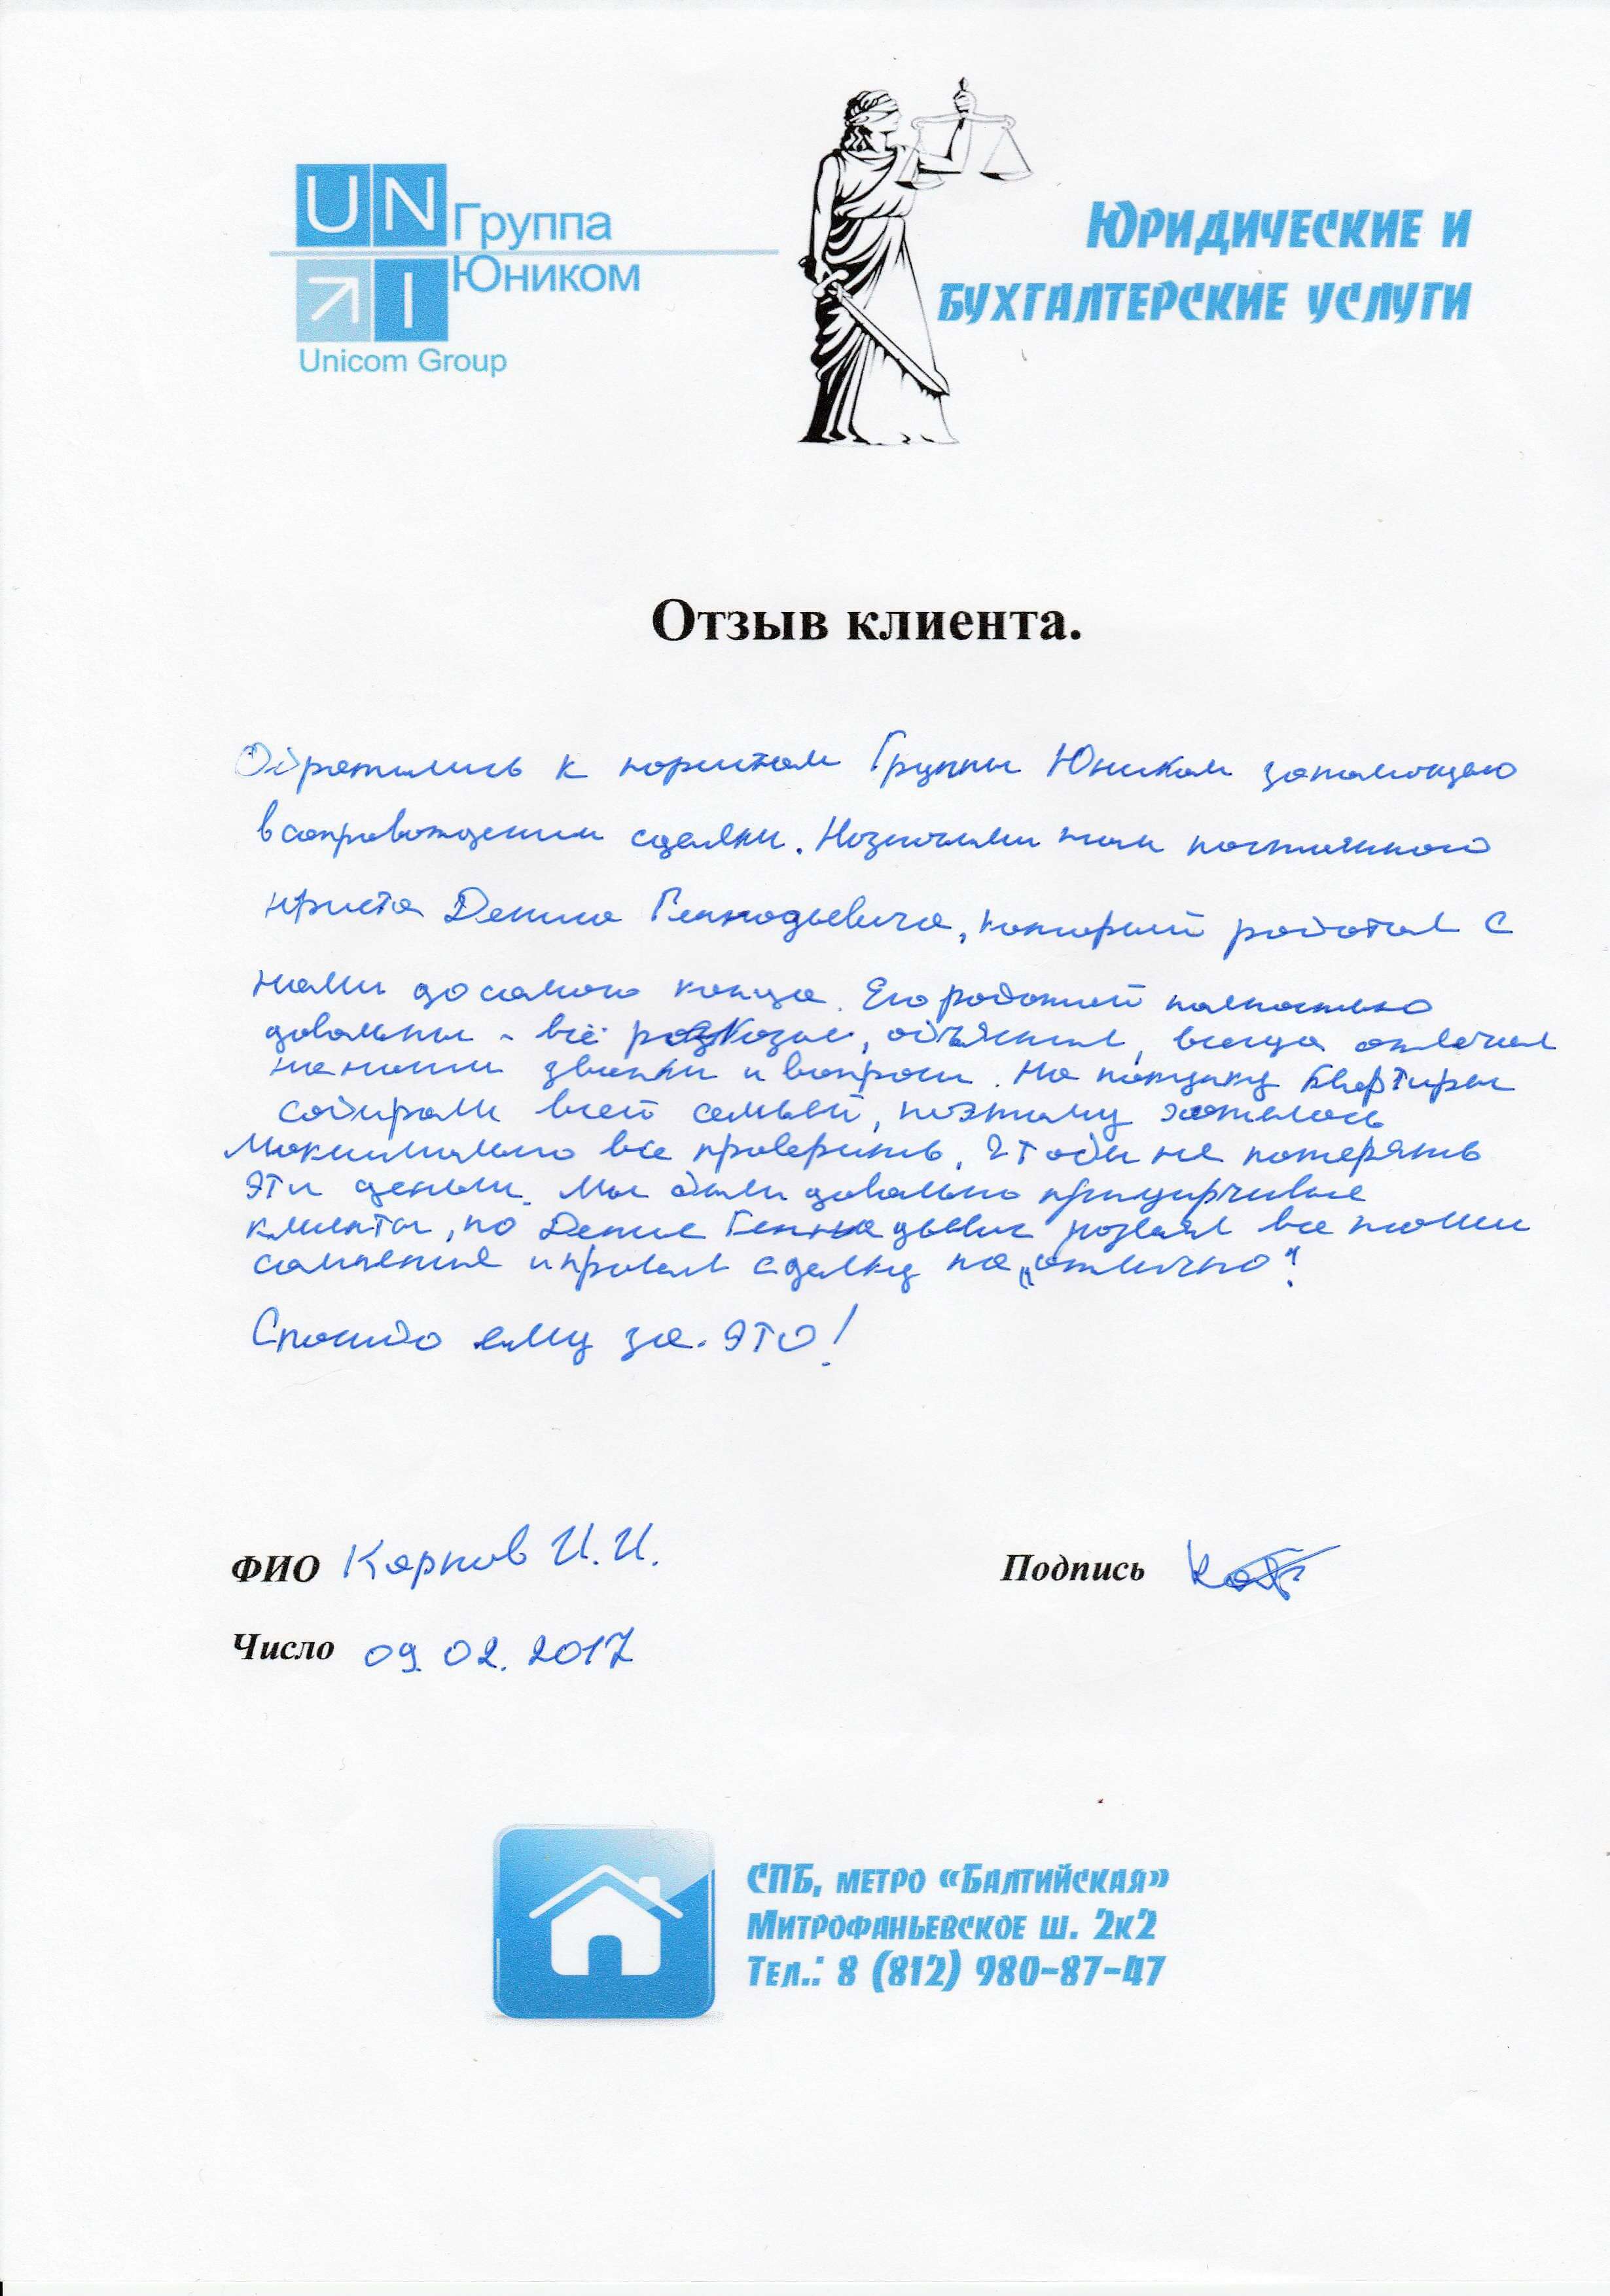 UN
Группа
Юником
I
Unicom Group
Юридические и
бухгалтерские услуги
Отзыв клиента.
Обратились к юристам Группы Юником за помощью
в сопровождении сделки. Назначили нам постоянного
юриста Дениса Геннадьевича, который работал с
нами до самого конца. Его работой полностью
довольны - всё рассказал, объяснил, всегда отвечал
на наши звонки и вопросы. На покупку квартиры
собирали всей семьей, поэтому хотелось
максимально все проверить, чтобы не потерять
эти деньги. Мы были довольно придирчивые
клиенты, но Денис Геннадьевич развеял все наши
сомнения и провел сделку на „отлично"!
Спасибо ему за это!
ФИО Карпов И.И.
Подпись
Число 09.02.2017
СПБ, метро «Балтийская»
Митрофаньевское ш. 2к2
Тел.: 8 (812) 980-87-47